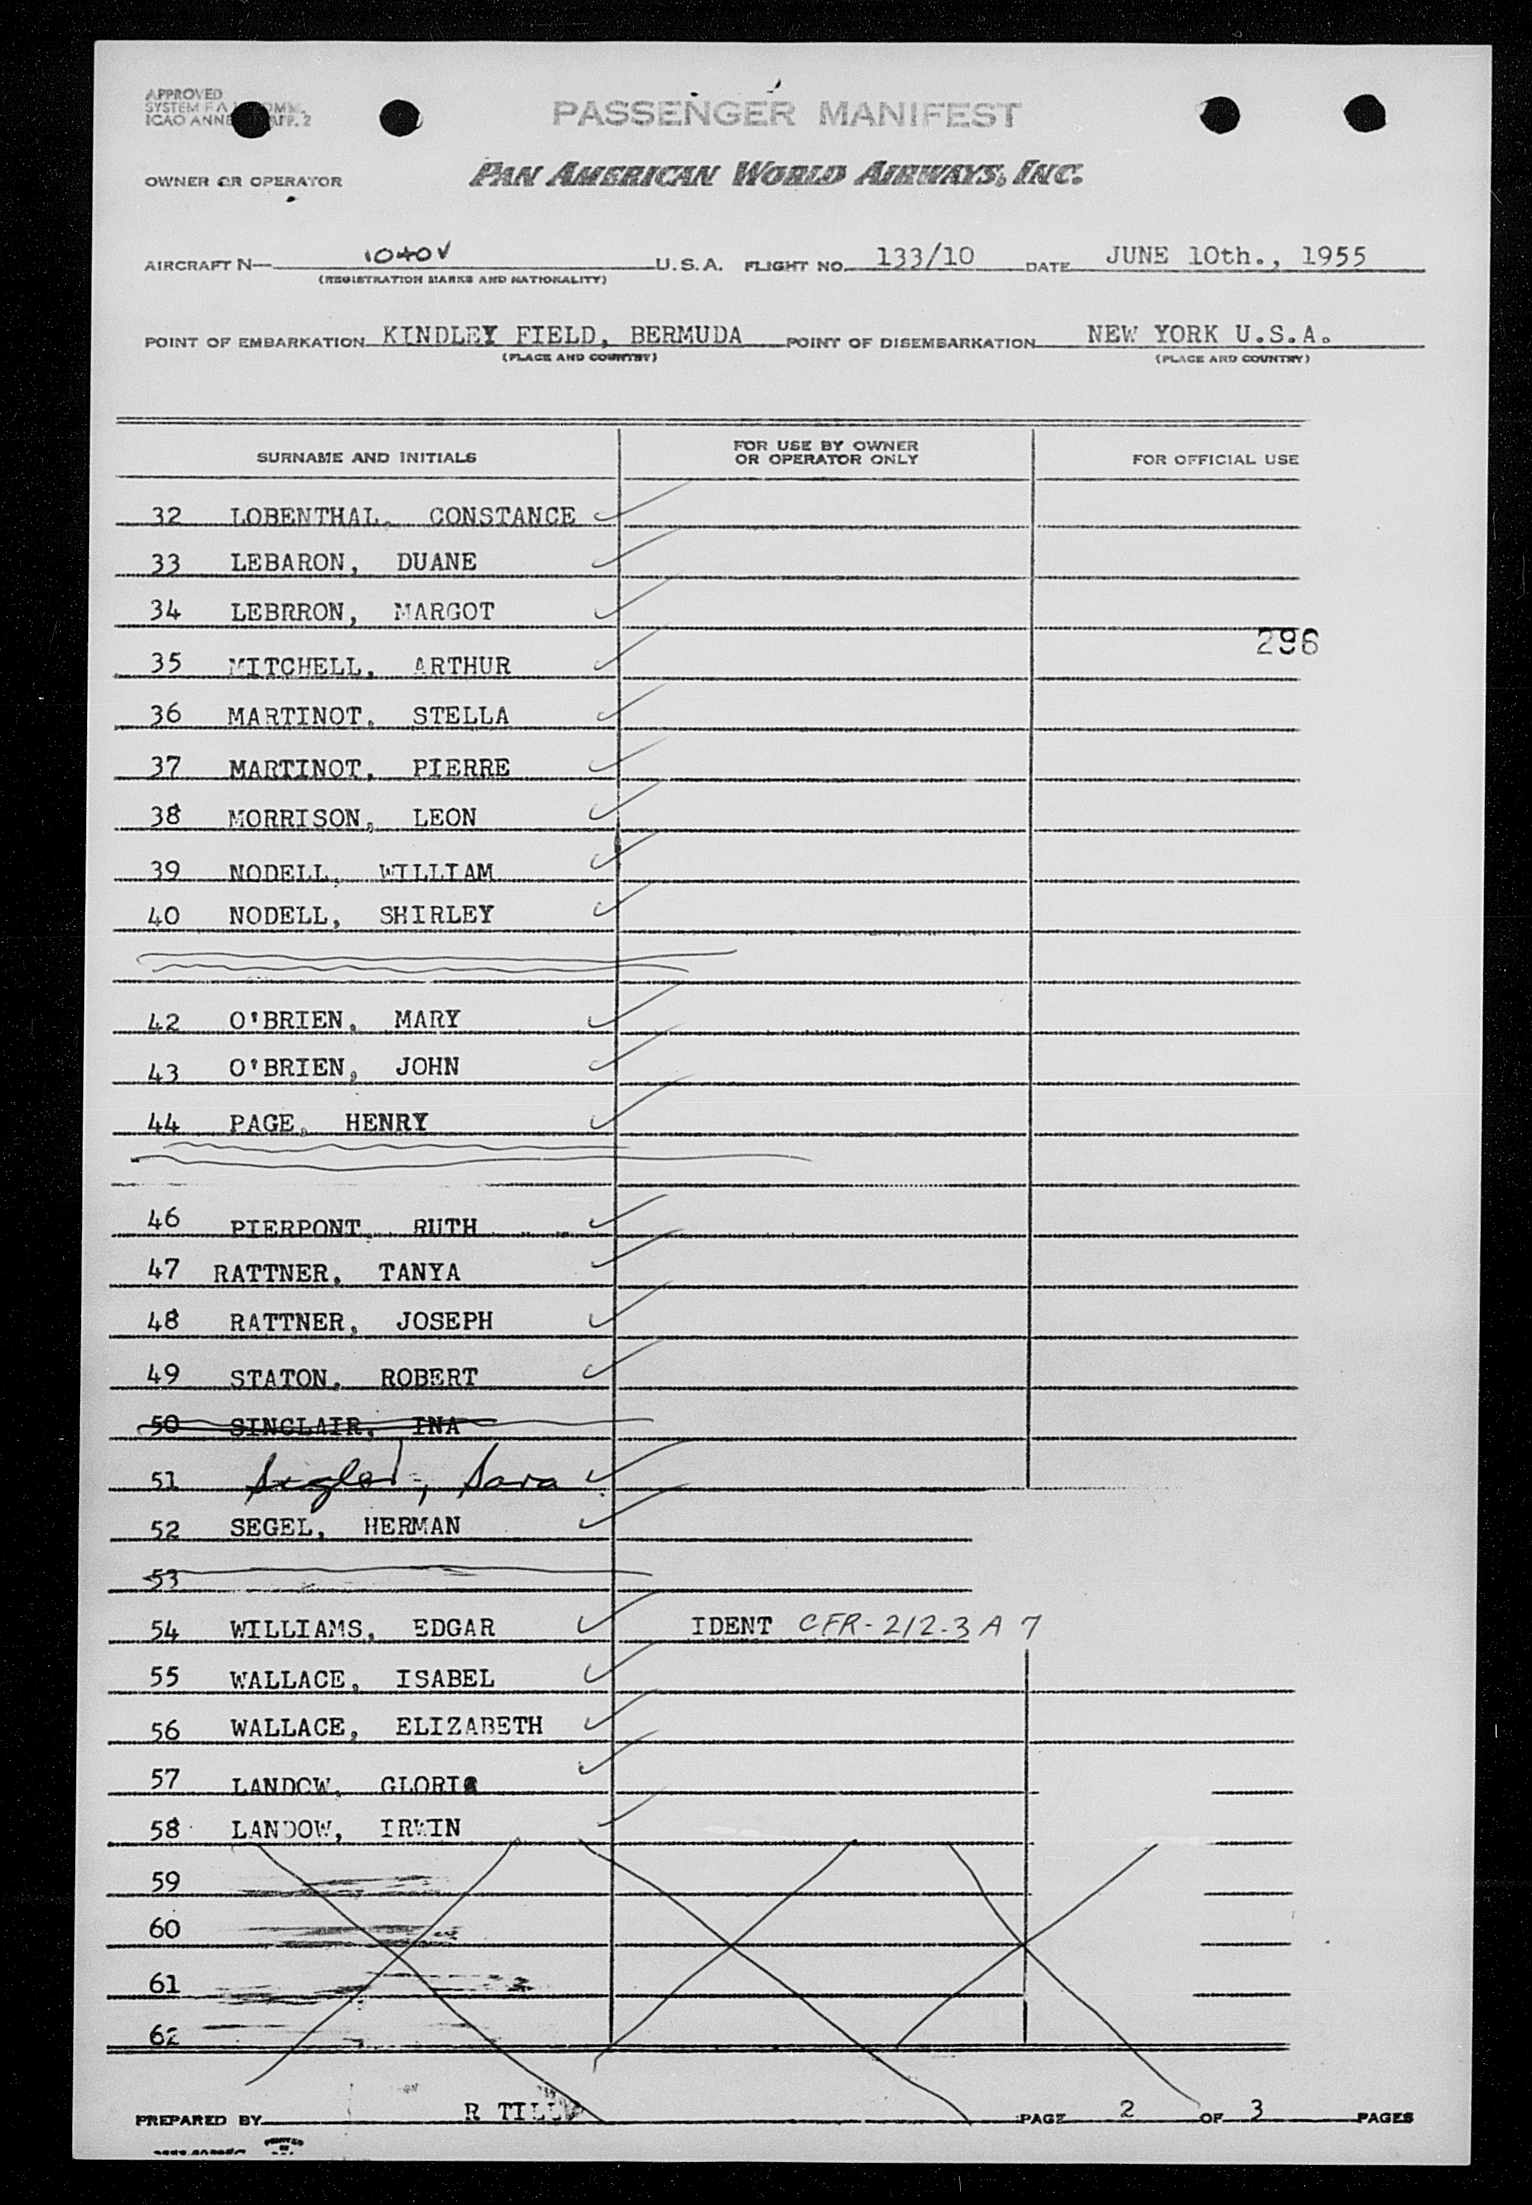 APPROVED
SYSTEM F A
ICAO ANNE APP. 2
PASSENGER MANIFEST
OWNER OR OPERATOR PAN AMERICAN WORLD AIRWAYS, INC.
AIRCRAFT N— 1040V U.S.A. FLIGHT NO. 133/10 DATE JUNE 10th., 1955
(REGISTRATION MARKS AND NATIONALITY)
POINT OF EMBARKATION KINDLEY FIELD, BERMUDA POINT OF DISEMBARKATION NEW YORK U.S.A.
(PLACE AND COUNTRY) (PLACE AND COUNTRY)
SURNAME AND INITIALS FOR USE BY OWNER OR OPERATOR ONLY FOR OFFICIAL USE
32 LOBENTHAL, CONSTANCE
33 LEBARON, DUANE
34 LEBRRON, MARGOT
296
35 MITCHELL, ARTHUR
36 MARTINOT, STELLA
37 MARTINOT, PIERRE
38 MORRISON, LEON
39 NODELL, WILLIAM
40 NODELL, SHIRLEY
42 O'BRIEN, MARY
43 O'BRIEN, JOHN
44 PAGE, HENRY
46 PIERPONT, RUTH
47 RATTNER, TANYA
48 RATTNER, JOSEPH
49 STATON, ROBERT
50 SINCLAIR, INA
51 Sara
52 SEGEL, HERMAN
53
54 WILLIAMS, EDGAR IDENT CFR-212-3 A 7
55 WALLACE, ISABEL
56 WALLACE, ELIZABETH
57 LANDOW, GLORIA
58 LANDOW, IRWIN
59
60
61
62
PREPARED BY R TILLY PAGE 2 OF 3 PAGES